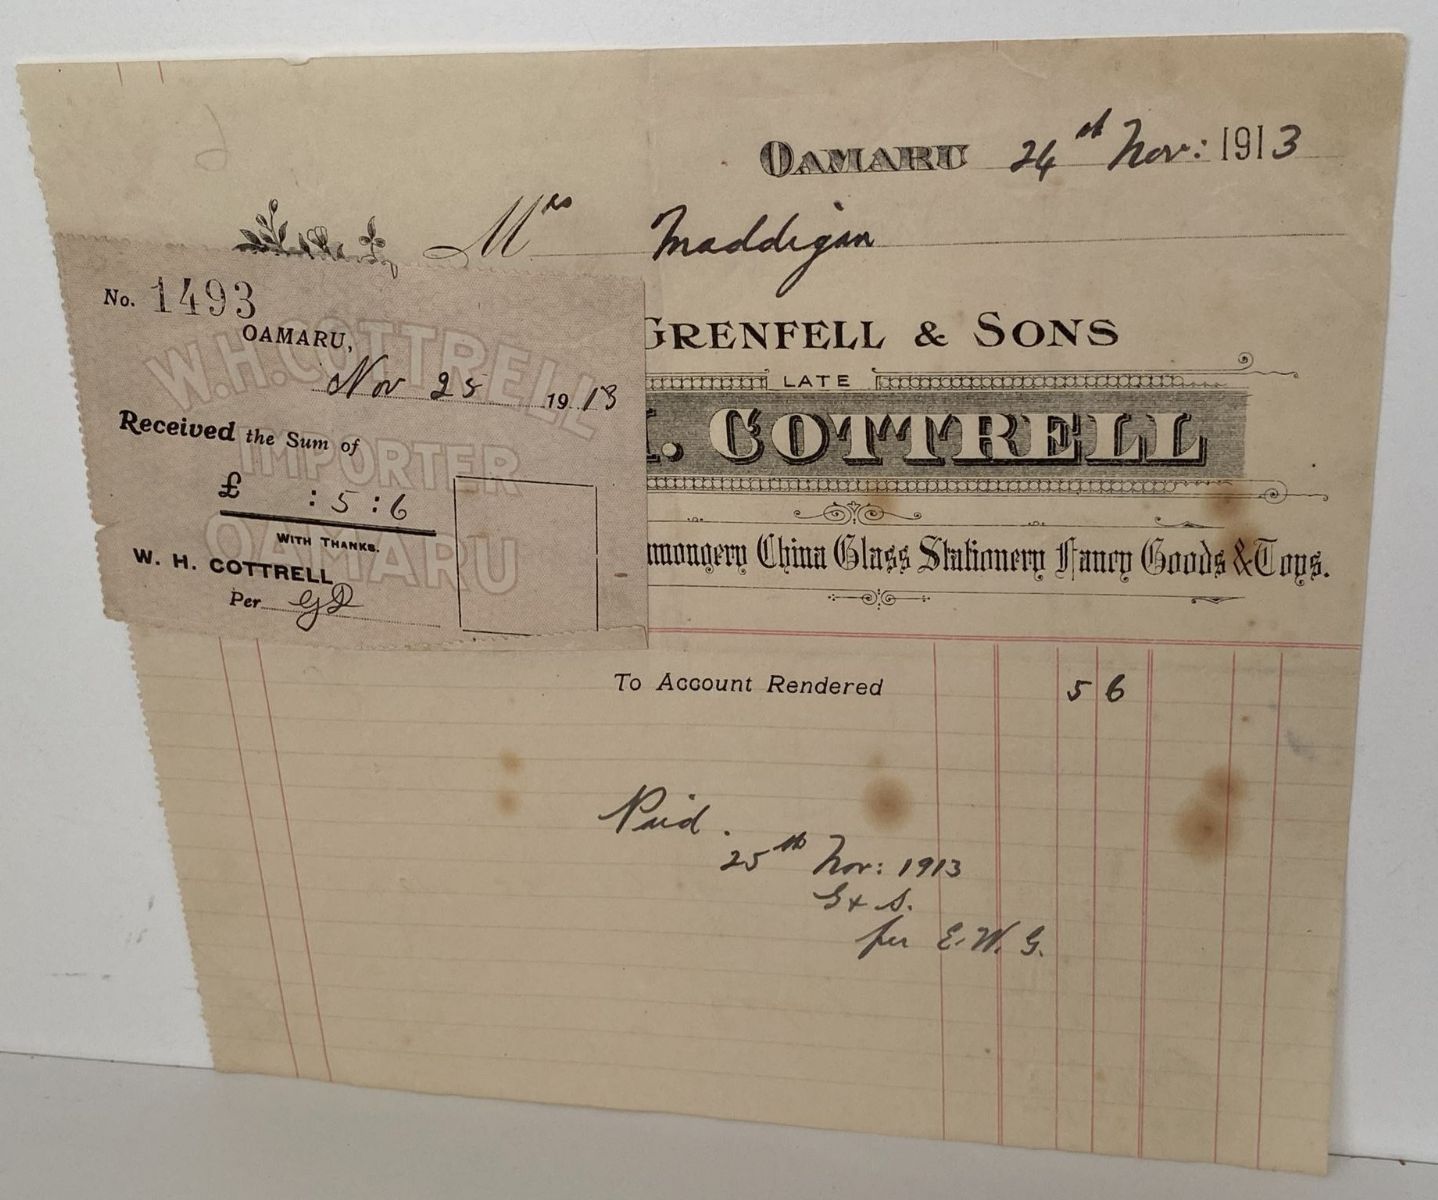 OAMARU 24st Nov: 1913
Mrs Maddigan
GRENFELL & SONS
LATE
. COTTRELL
mongery China Glass Stationery Fancy Goods & Toys.
No. 1493
OAMARU,
Nov 25 1913
Received the Sum of
£ : 5 : 6
WITH THANKS.
W. H. COTTRELL
Per
W.H. COTTRELL
IMPORTER
OAMARU
To Account Rendered 5 6
Paid.
25th Nov: 1913
G & S.
per E. W. G.